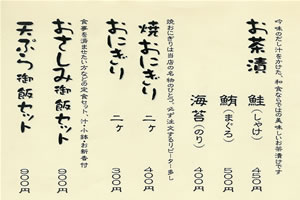 吟味のだし汁をかけた、和食ならではの美味しいお茶漬けです
お茶漬
鮭(しゃけ) 450円
鮪(まぐろ) 500円
海苔(のり) 400円
焼おにぎりは当店の名物のひとつ。必ず注文するリピーター多し
焼おにぎり 二ヶ 400円
おにぎり 二ヶ 300円
食事を済ませたい方ならの定食セット、汁・小鉢・お新香付
おさしみ御飯セット 900円
天ぷら御飯セット 900円